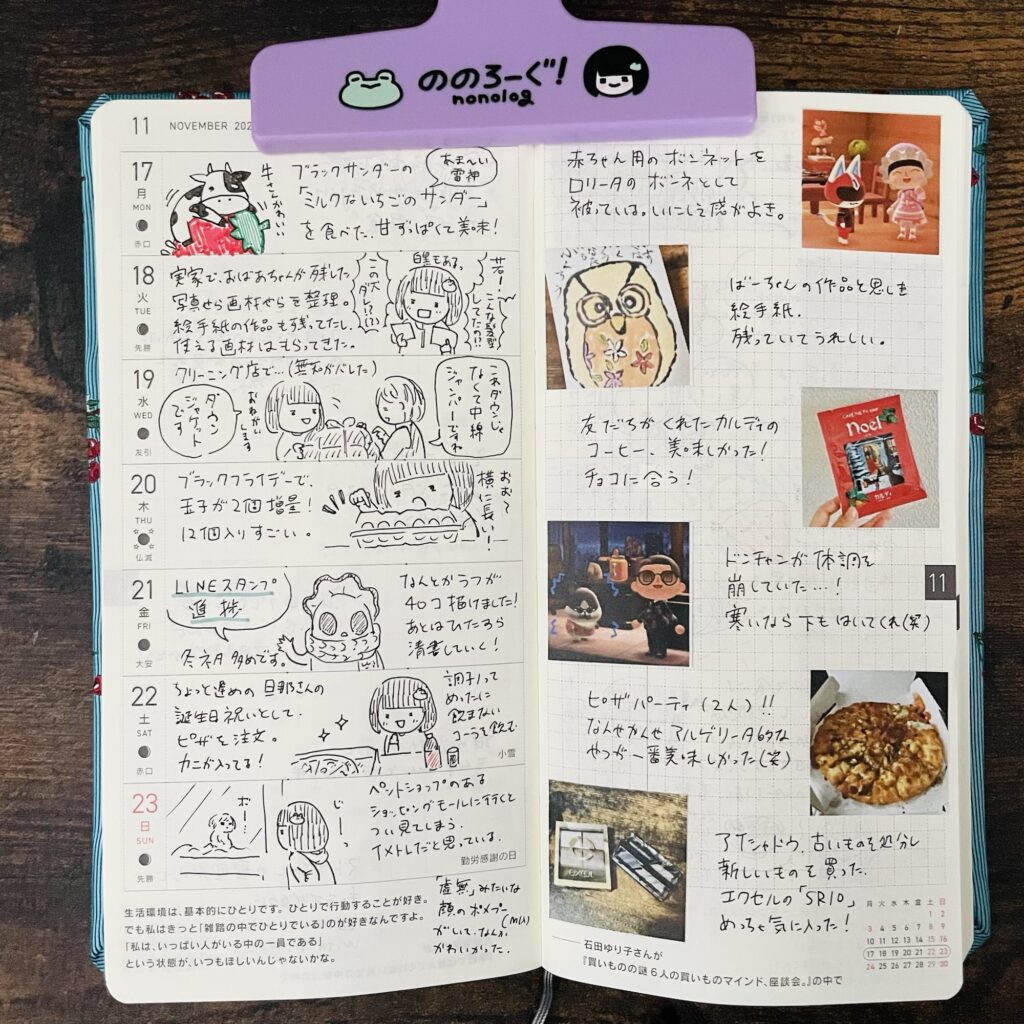 ののろーぐ!
nonolog
11 NOVEMBER 202
17
月
MON
赤口
牛さんかわいい
ブラックサンダーの
あま〜い
雷神
「ミルクないちごのサンダー」
を食べた、甘ずっぱくて美味!
18
火
TUE
先勝
実家で、おばあちゃんが残した
写真やら画材やらを整理。
絵手紙の作品も残ってたし、
使える画材はもらってきた。
この犬
ダレ!?!?
白黒もある、
若!
こんな髪型
してたの!?
19
水
WED
友引
クリーニング店で…(無知がバレた)
ダウン
ジャケット
です
おねがい
します
これダウンじゃ
なくて中綿
ジャンパーですね
20
木
THU
仏滅
ブラックフライデーで、
玉子が2個増量!
12個入りすごい。
おお〜
横に長い!
21
金
FRI
大安
LINEスタンプ
進捗
冬ネタ多めです。
なんとかラフが
40コ描けました!
あとはひたすら
清書していく!
22
土
SAT
赤口
ちょっと遅めの旦那さんの
誕生日祝いとして、
ピザを注文。
カニが入ってる!
調子のって
めったに
飲まない
コーラを飲む
小雪
23
日
SUN
先勝
お…
じーっ
ペットショップのある
ショッピングモールに行くと
つい見てしまう。
イメトレだと思っている。
勤労感謝の日
「虚無」みたいな
顔のポメプー(MIX)
がいて、なんか
かわいかった。
生活環境は、基本的にひとりです。ひとりで行動することが好き。
でも私はきっと「雑踏の中でひとりでいる」のが好きなんですよ。
「私は、いっぱい人がいる中の一員である」
という状態が、いつもほしいんじゃないかな。
赤ちゃん用のボンネットを
ロリータのボンネとして
被っている。いにしえ感がよき。
ばーちゃんの作品と思しき
絵手紙。
残っていてうれしい。
友だちがくれたカルディの
コーヒー、美味しかった!
チョコに合う!
noel
カルディ
ドンチャンが体調を
崩していた…!
11
寒いなら下もはいてくれ(笑)
ピザパーティ(2人)!!
なんやかんやマルゲリータ的な
やつが一番美味しかった(笑)
アイシャドウ、古いものを処分し
新しいものを買った。
エクセルの「SR10」
めっちゃ気に入った!
月 火 水 木 金 土 日
1 2
3 4 5 6 7 8 9
10 11 12 13 14 15 16
17 18 19 20 21 22 23
24 25 26 27 28 29 30
——石田ゆり子さんが
『買いものの謎 6人の買いものマインド、座談会。』の中で